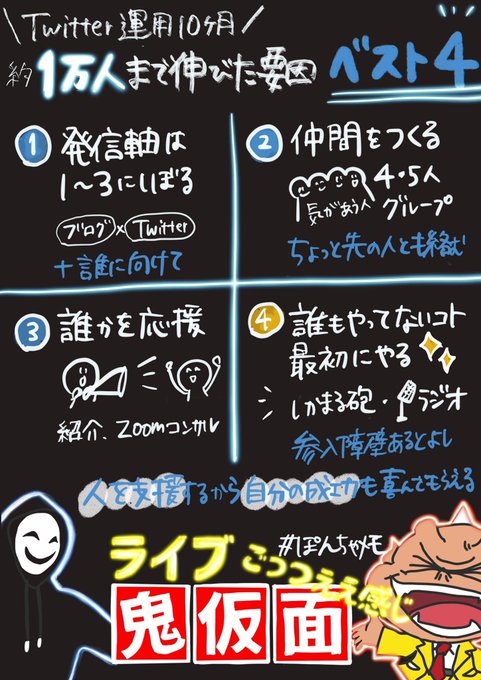 \Twitter運用10ヶ月/
約1万人まで伸びた要因 ベスト4
① 発信軸は
1〜3にしぼる
ブログ×Twitter
+誰に向けて
② 仲間をつくる
気があう人
4・5人
グループ
ちょっと先の人とも絡む
③ 誰かを応援
紹介、Zoomコンサル
④ 誰もやってないコト
最初にやる
しかまる砲・ラジオ
参入障壁あるとよし
人を支援するから自分の成功も喜んでもらえる
#ぽんちゃメモ
ライブごっつええ感じ
鬼仮面